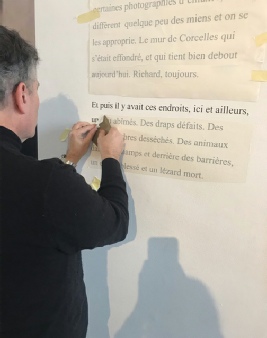 certaines photographies d'
différent quelque peu des miens et on se
les approprie. Le mur de Corcelles qui
s'était effondré, et qui tient bien debout
aujourd'hui. Richard, toujours.
Et puis il y avait ces endroits, ici et ailleurs,
abîmés. Des draps défaits. Des
bres desséchés. Des animaux
et derrière des barrières,
et un lézard mort.